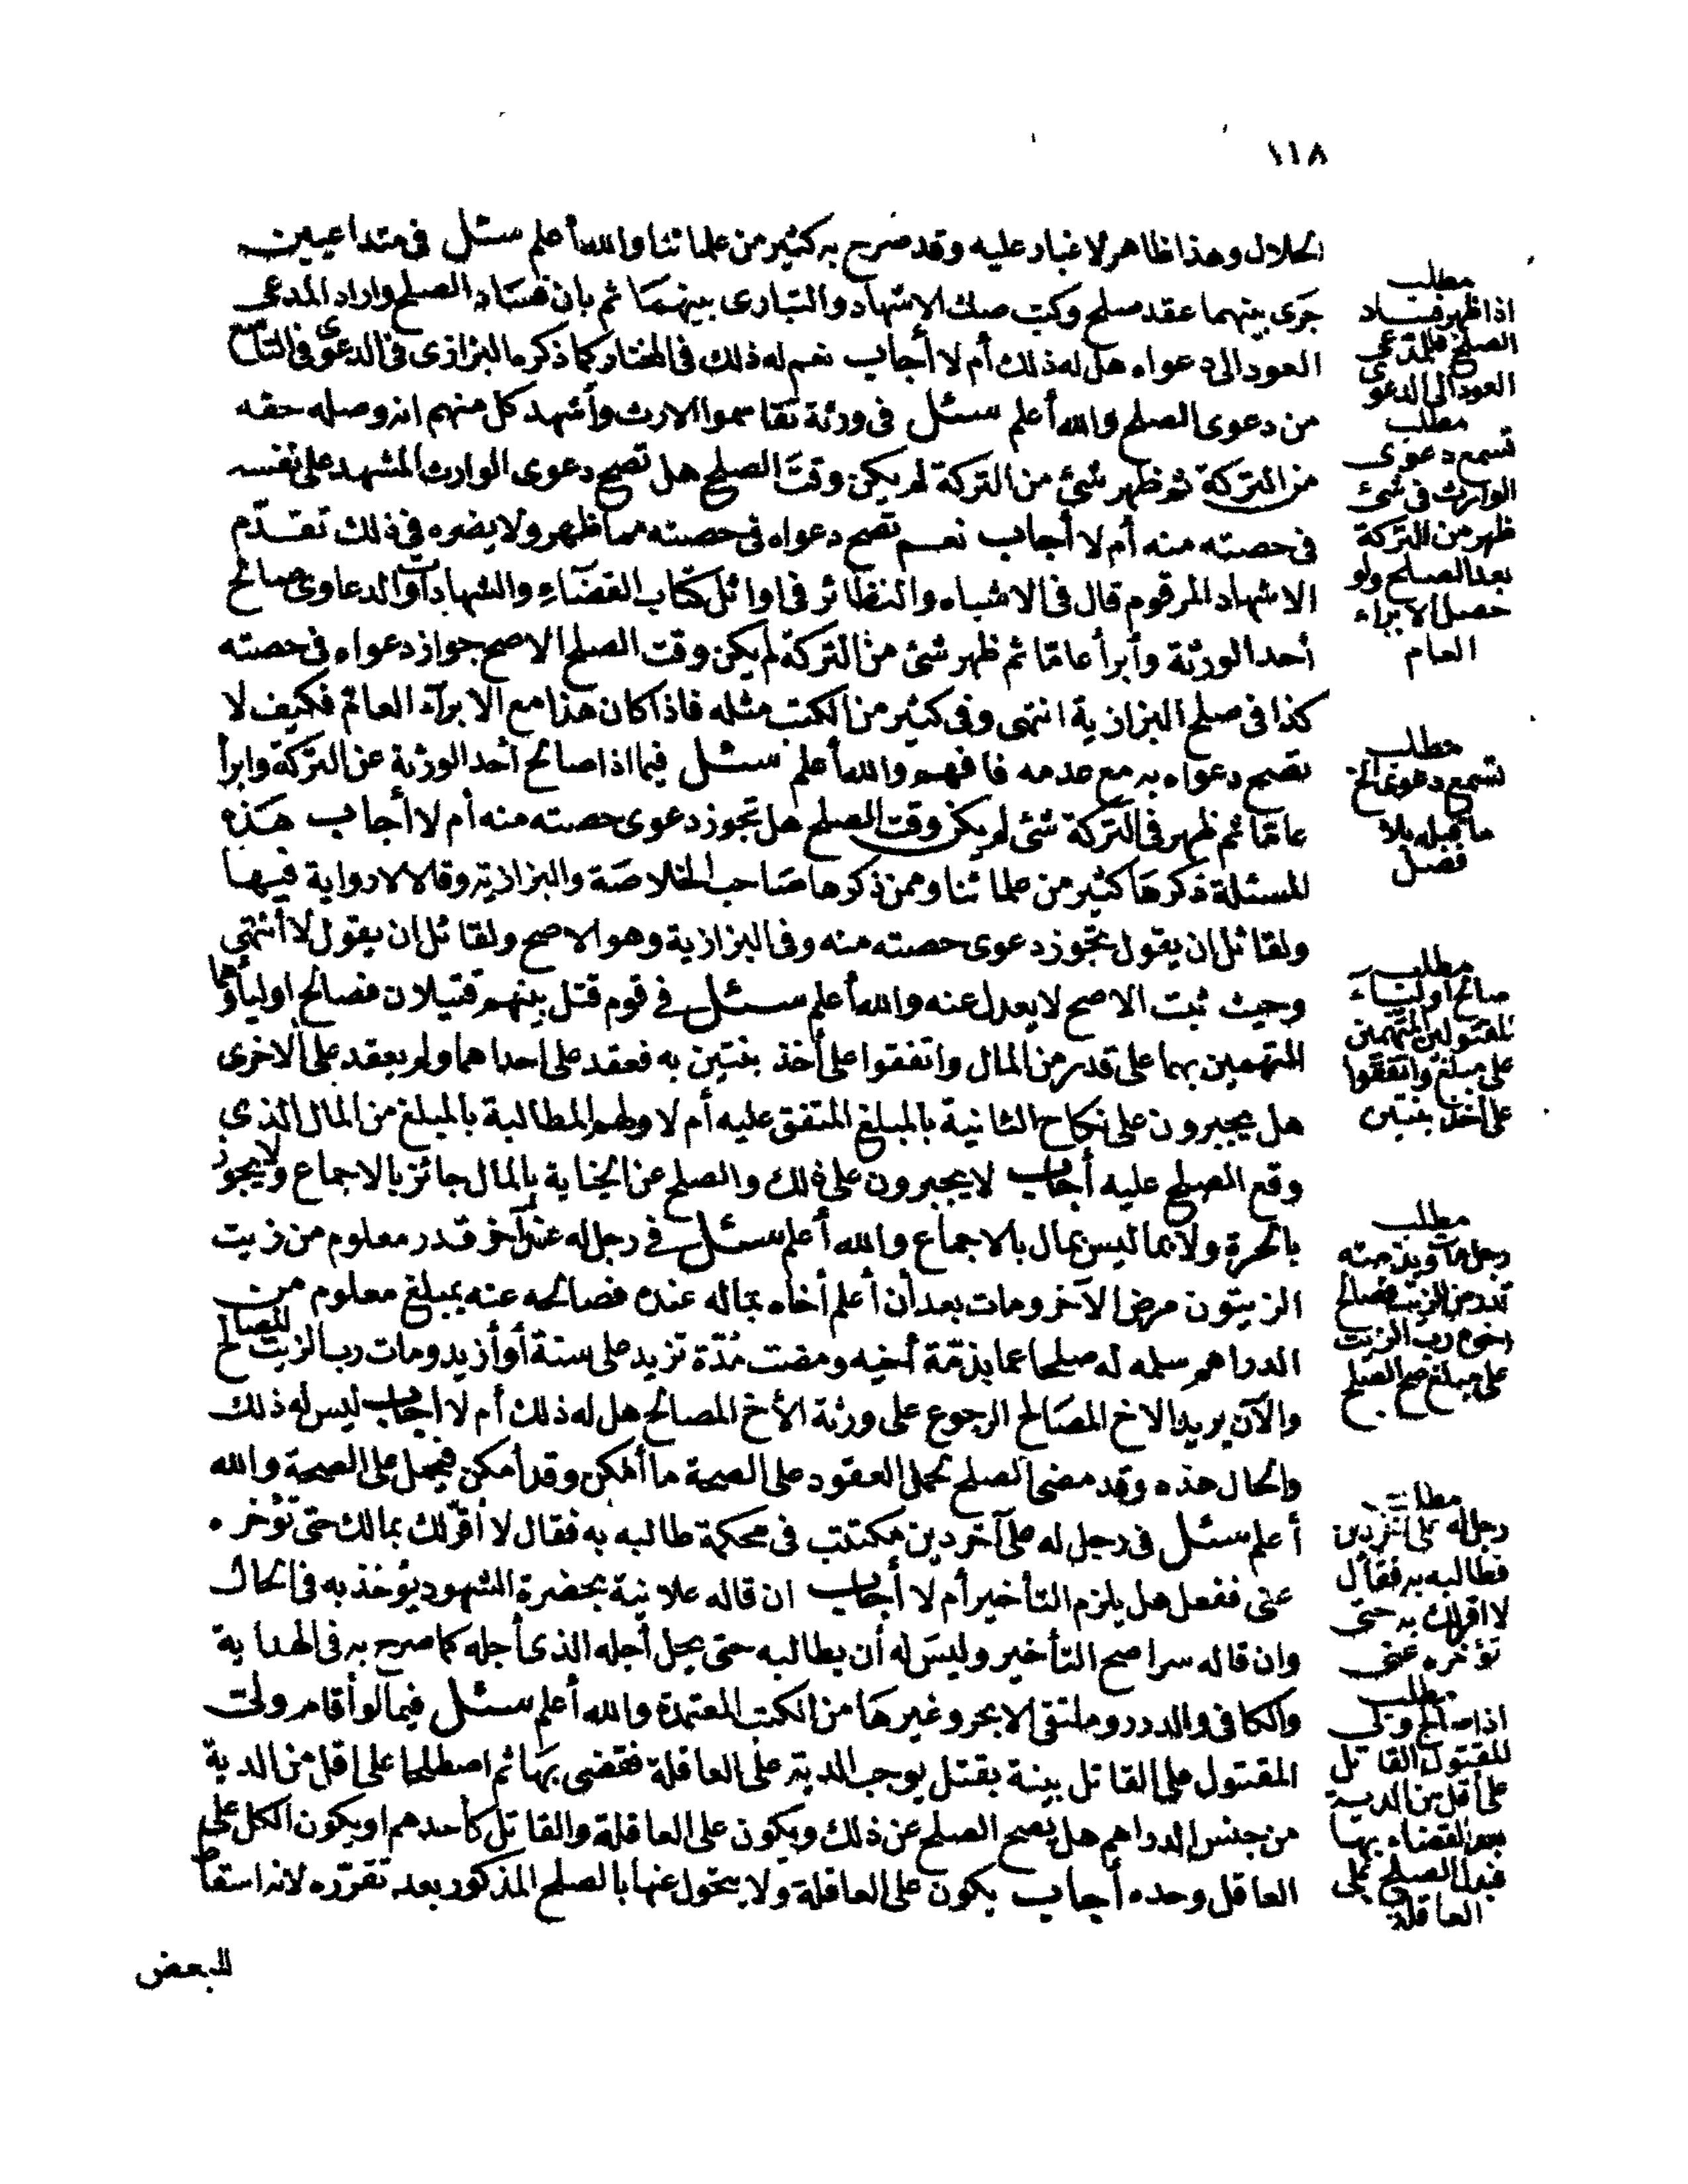 ١١٨
الحلال وهذا ظاهر لا غبار عليه وقد صرح به كثير من علمائنا والله أعلم سئل في متداعيين
جرى بينهما عقد صلح وكتب صك الاشهاد والتبارى بينهما ثم بان فساد الصلح واراد المدعى
العود الى دعواه هل له ذلك أم لا أجاب نعم له ذلك في المختار كما ذكره البزازى في الدعوى في التاسع
من دعوى الصلح والله أعلم سئل في ورثة تقاسموا الارث وأشهد كل منهم انه وصله حقه
من التركة ثم ظهر شئ من التركة لم يكن وقت الصلح هل تصح دعوى الوارث المشهد على نفسه
في حصته منه أم لا أجاب نعم تصح دعواه في حصته مما ظهر ولا يضره في ذلك تقدّم
الاشهاد المرقوم قال في الاشباه والنظائر في اوائل كتاب القضآء والشهادات والدعاوى صالح
أحد الورثة وأبرأ عامّا ثم ظهر شئ من التركة لم يكن وقت الصلح الاصح جواز دعواه في حصته
كذا في صلح البزازية انتهى وفي كثير من الكتب مثله فاذا كان هذا مع الابرآء العامّ فكيف لا
تصح دعواه به مع عدمه فافهم والله أعلم سئل فيما اذا صالح أحد الورثة عن التركة وابرأ
عامّا ثم ظهر في التركة شئ لم يكن وقت الصلح هل تجوز دعوى حصته منه أم لا أجاب هذه
المسئلة ذكرها كثير من علمائنا وممن ذكرها صاحب الخلاصة والبزازية وقالا لا رواية فيها
ولقائل ان يقول تجوز دعوى حصته منه وفي البزازية وهو الاصح ولقائل ان يقول لا أنتهى
وحيث ثبت الاصح لا يعدل عنه والله أعلم سئل في قوم قتل بينهم قتيلان فصالح اولياؤهما
المتهمين بهما على قدر من المال واتفقوا على أخذ بنتين به فعقد على احداهما ولم يعقد على الاخرى
هل يجبرون على نكاح الثانية بالمبلغ المتفق عليه أم لا ولهم المطالبة بالمبلغ من المال الذى
وقع الصلح عليه أجاب لا يجبرون على ذلك والصلح عن الجناية بالمال جائز بالاجماع ولا يجوز
بالحرة ولا بما ليس بمال بالاجماع والله أعلم سئل في رجل له عند آخر قدر معلوم من زيت
الزيتون مرض الآخر ومات بعد أن أعلم أخاه بماله عنده فصالحه عنه بمبلغ معلوم من
الدراهم سلمه له صلحا عما بذمّة أخيه ومضت مدّة تزيد على سنة أو أزيد ومات رب الزيت المصالح
والآن يريد الاخ المصالح الرجوع على ورثة الأخ المصالح هل له ذلك أم لا اجاب ليس له ذلك
والحال هذه وقد مضى الصلح تحمل العقود على الصحة ما أمكن وقد أمكن فيحمل على الصحة والله
أعلم سئل في رجل له على آخر دين مكتتب في محكمة طالبه به فقال لا أقرّ لك بمالك حتى تؤخره
عنى ففعل هل يلزم التأخير أم لا أجاب ان قاله علانية بحضرة الشهود يؤخذ به في الحال
وان قاله سرا صح التأخير وليس له أن يطالبه حتى يحل أجله الذى أجله كما صرح به في الهداية
والكافى والدرر وملتقى الابحر وغيرها من الكتب المعتمدة والله أعلم سئل فيما لو أقام ولىّ
المقتول على القاتل بينة بقتل يوجب الدية على العاقلة فقضى بها ثم اصطلحا على اقل من الدية
من جنس الدراهم هل يصح الصلح عن ذلك ويكون على العاقلة والقاتل كأحدهم او يكون الكل على
العاقل وحده أجاب يكون على العاقلة ولا يتحول عنها بالصلح المذكور بعد تقرّره لانه اسقاط
للبعض
مطلب
اذا ظهر فساد
الصلح فللمدعى
العود الى الدعوى
مطلب
تسمع دعوى
الوارث في شئ
ظهر من التركة
بعد الصلح ولو
حصل الابراء
العام
مطلب
تسمع دعوى الخ
ما قبله بلا
فصل
مطلب
صالح اولياء
المقتولين المتهمين
على مبلغ واتفقوا
على أخذ بنتين
مطلب
رجل مات وبذمته
قدر من الزيت فصالح
اخوه رب الزيت
على مبلغ صح الصلح
مطلب
رجل له على آخر دين
فطالبه به فقال
لا اقر لك به حتى
تؤخره عنى
مطلب
اذا صالح ولى
المقتول القاتل
على أقل من الدية
بعد القضاء بها
فبدل الصلح على
العاقلة